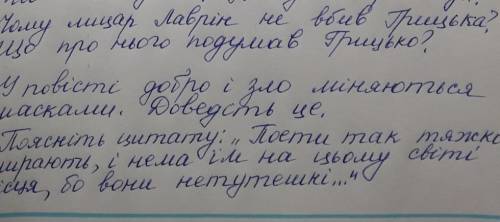 Чому лицар Лаврін не вбив Грицька?
Що про нього подумав Грицько?
У повісті добро і зло міняються
масками. Доведіть це.
Поясніть цитату: „Поети так тяжко
мирають, і нема їм на цьому світі
ісця, бо вони нетутешні..."